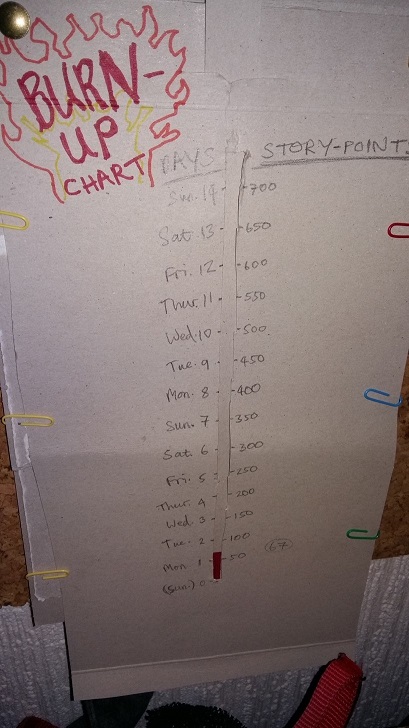 BURN-
UP
CHART
DAYS STORY-POINT
Sun. 14 - 700
Sat. 13 - 650
Fri. 12 - 600
Thur. 11 - 550
Wed. 10 - 500
Tue. 9 - 450
Mon. 8 - 400
Sun. 7 - 350
Sat. 6 - 300
Fri. 5 - 250
Thur. 4 - 200
Wed. 3 - 150
Tue. 2 - 100
Mon. 1 - 50 67
(Sun.) 0